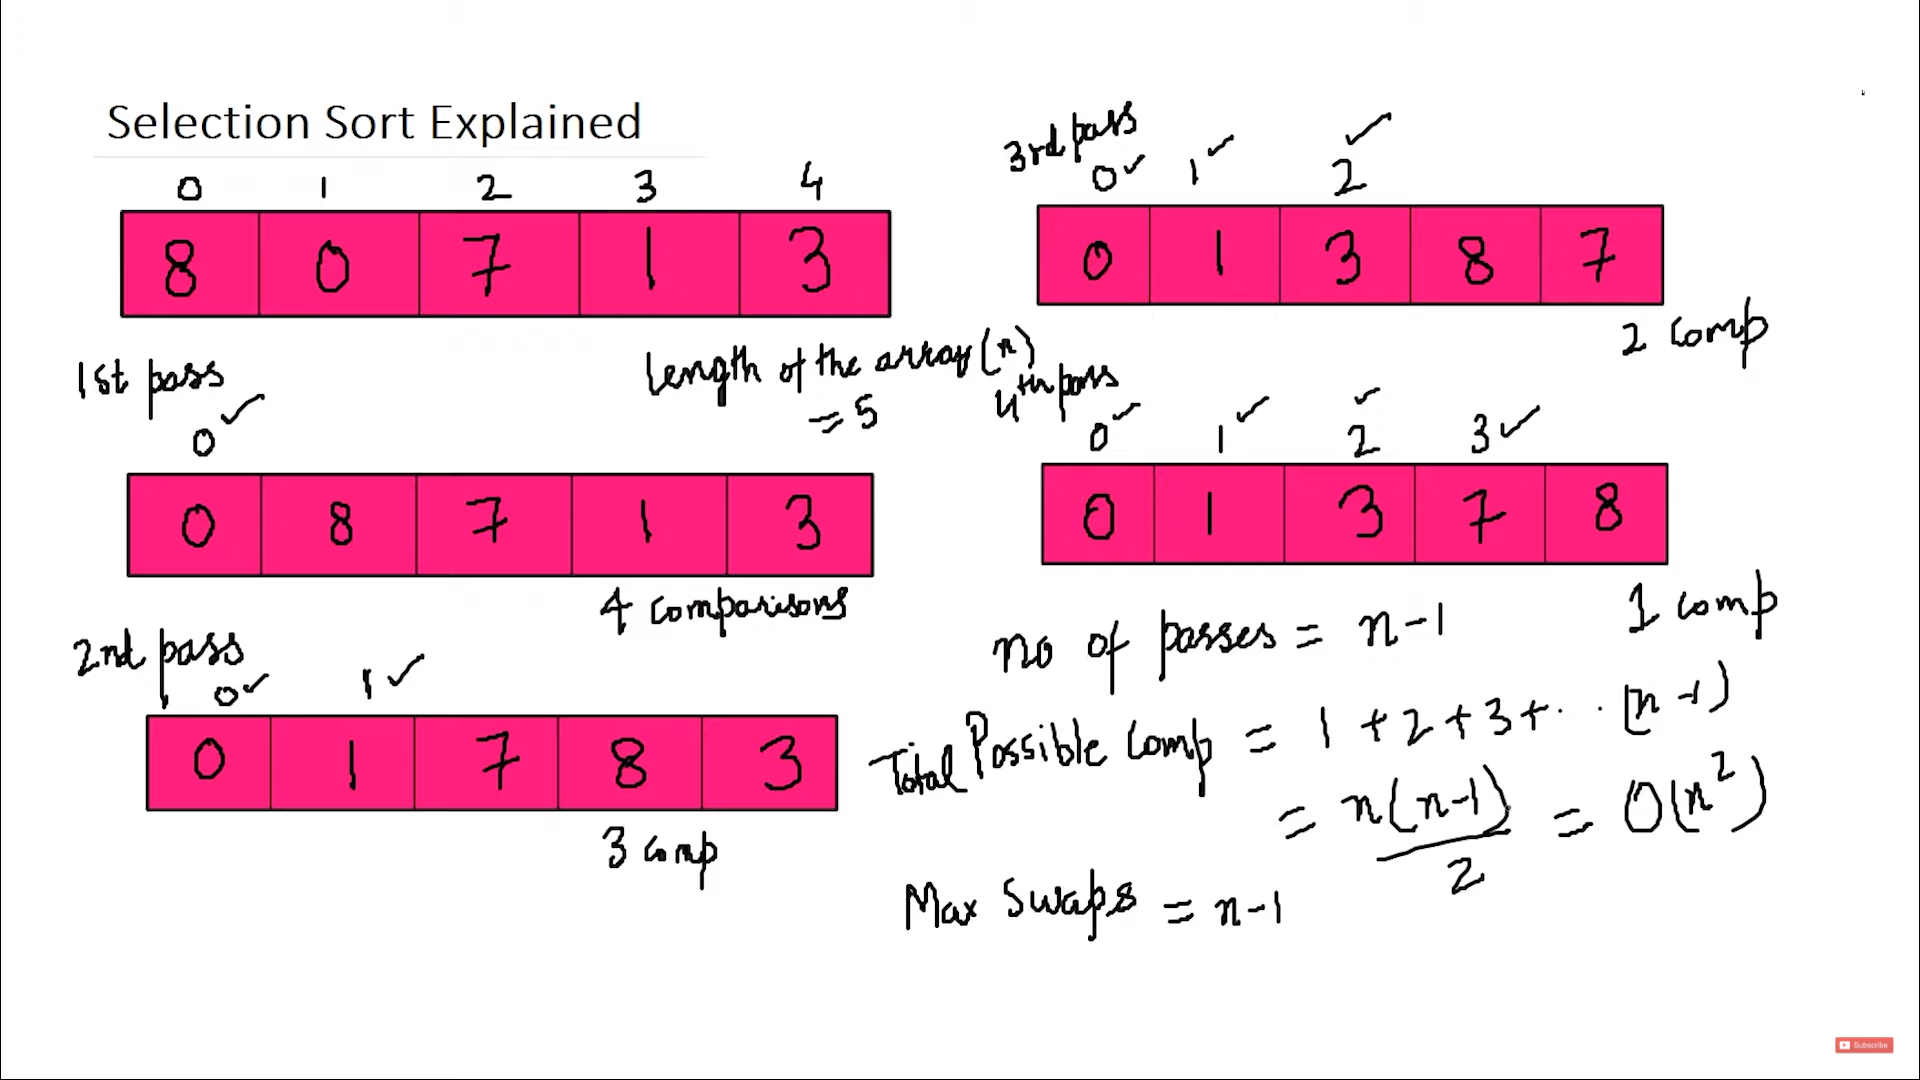 Selection Sort Explained
0 1 2 3 4
8 0 7 1 3
length of the array (n)
= 5
1st pass
0
0 8 7 1 3
4 comparisons
2nd pass
0 1
0 1 7 8 3
3 comp
3rd pass
0 1 2
0 1 3 8 7
2 comp
4th pass
0 1 2 3
0 1 3 7 8
1 comp
no of passes = n-1
Total Possible Comp = 1 + 2 + 3 + . . . (n-1)
= n(n-1)/2 = O(n²)
Max Swaps = n-1
Subscribe